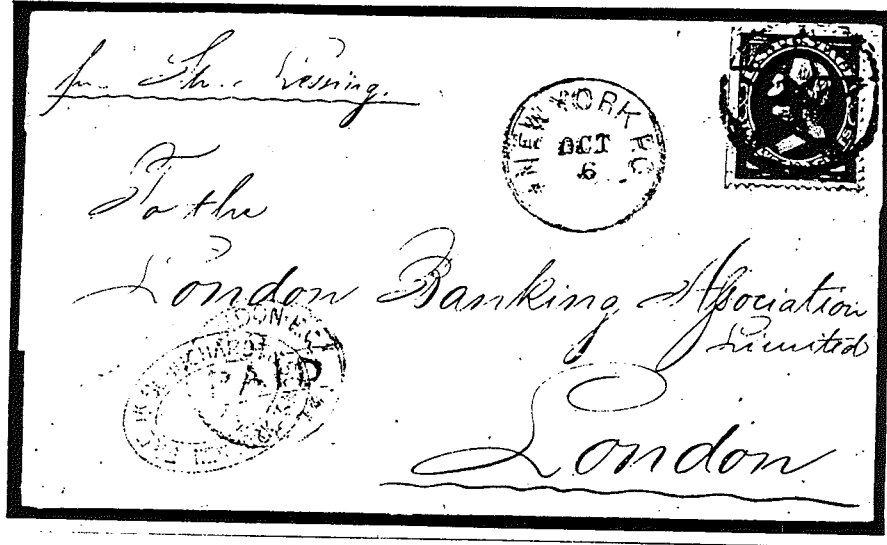 pr. Th. Lessing.
NEW YORK P.O.
OCT
6
To the
London Banking Association
Limited
LONDON E.C.
PAID
London